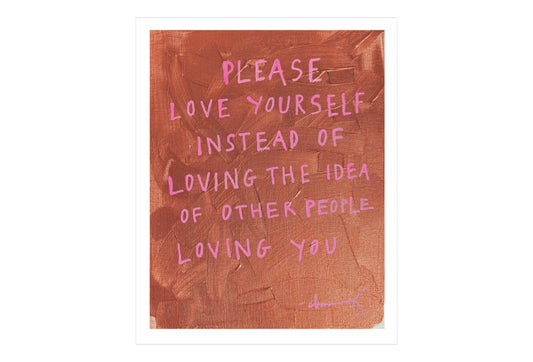 PLEASE
LOVE YOURSELF
INSTEAD OF
LOVING THE IDEA
OF OTHER PEOPLE
LOVING YOU